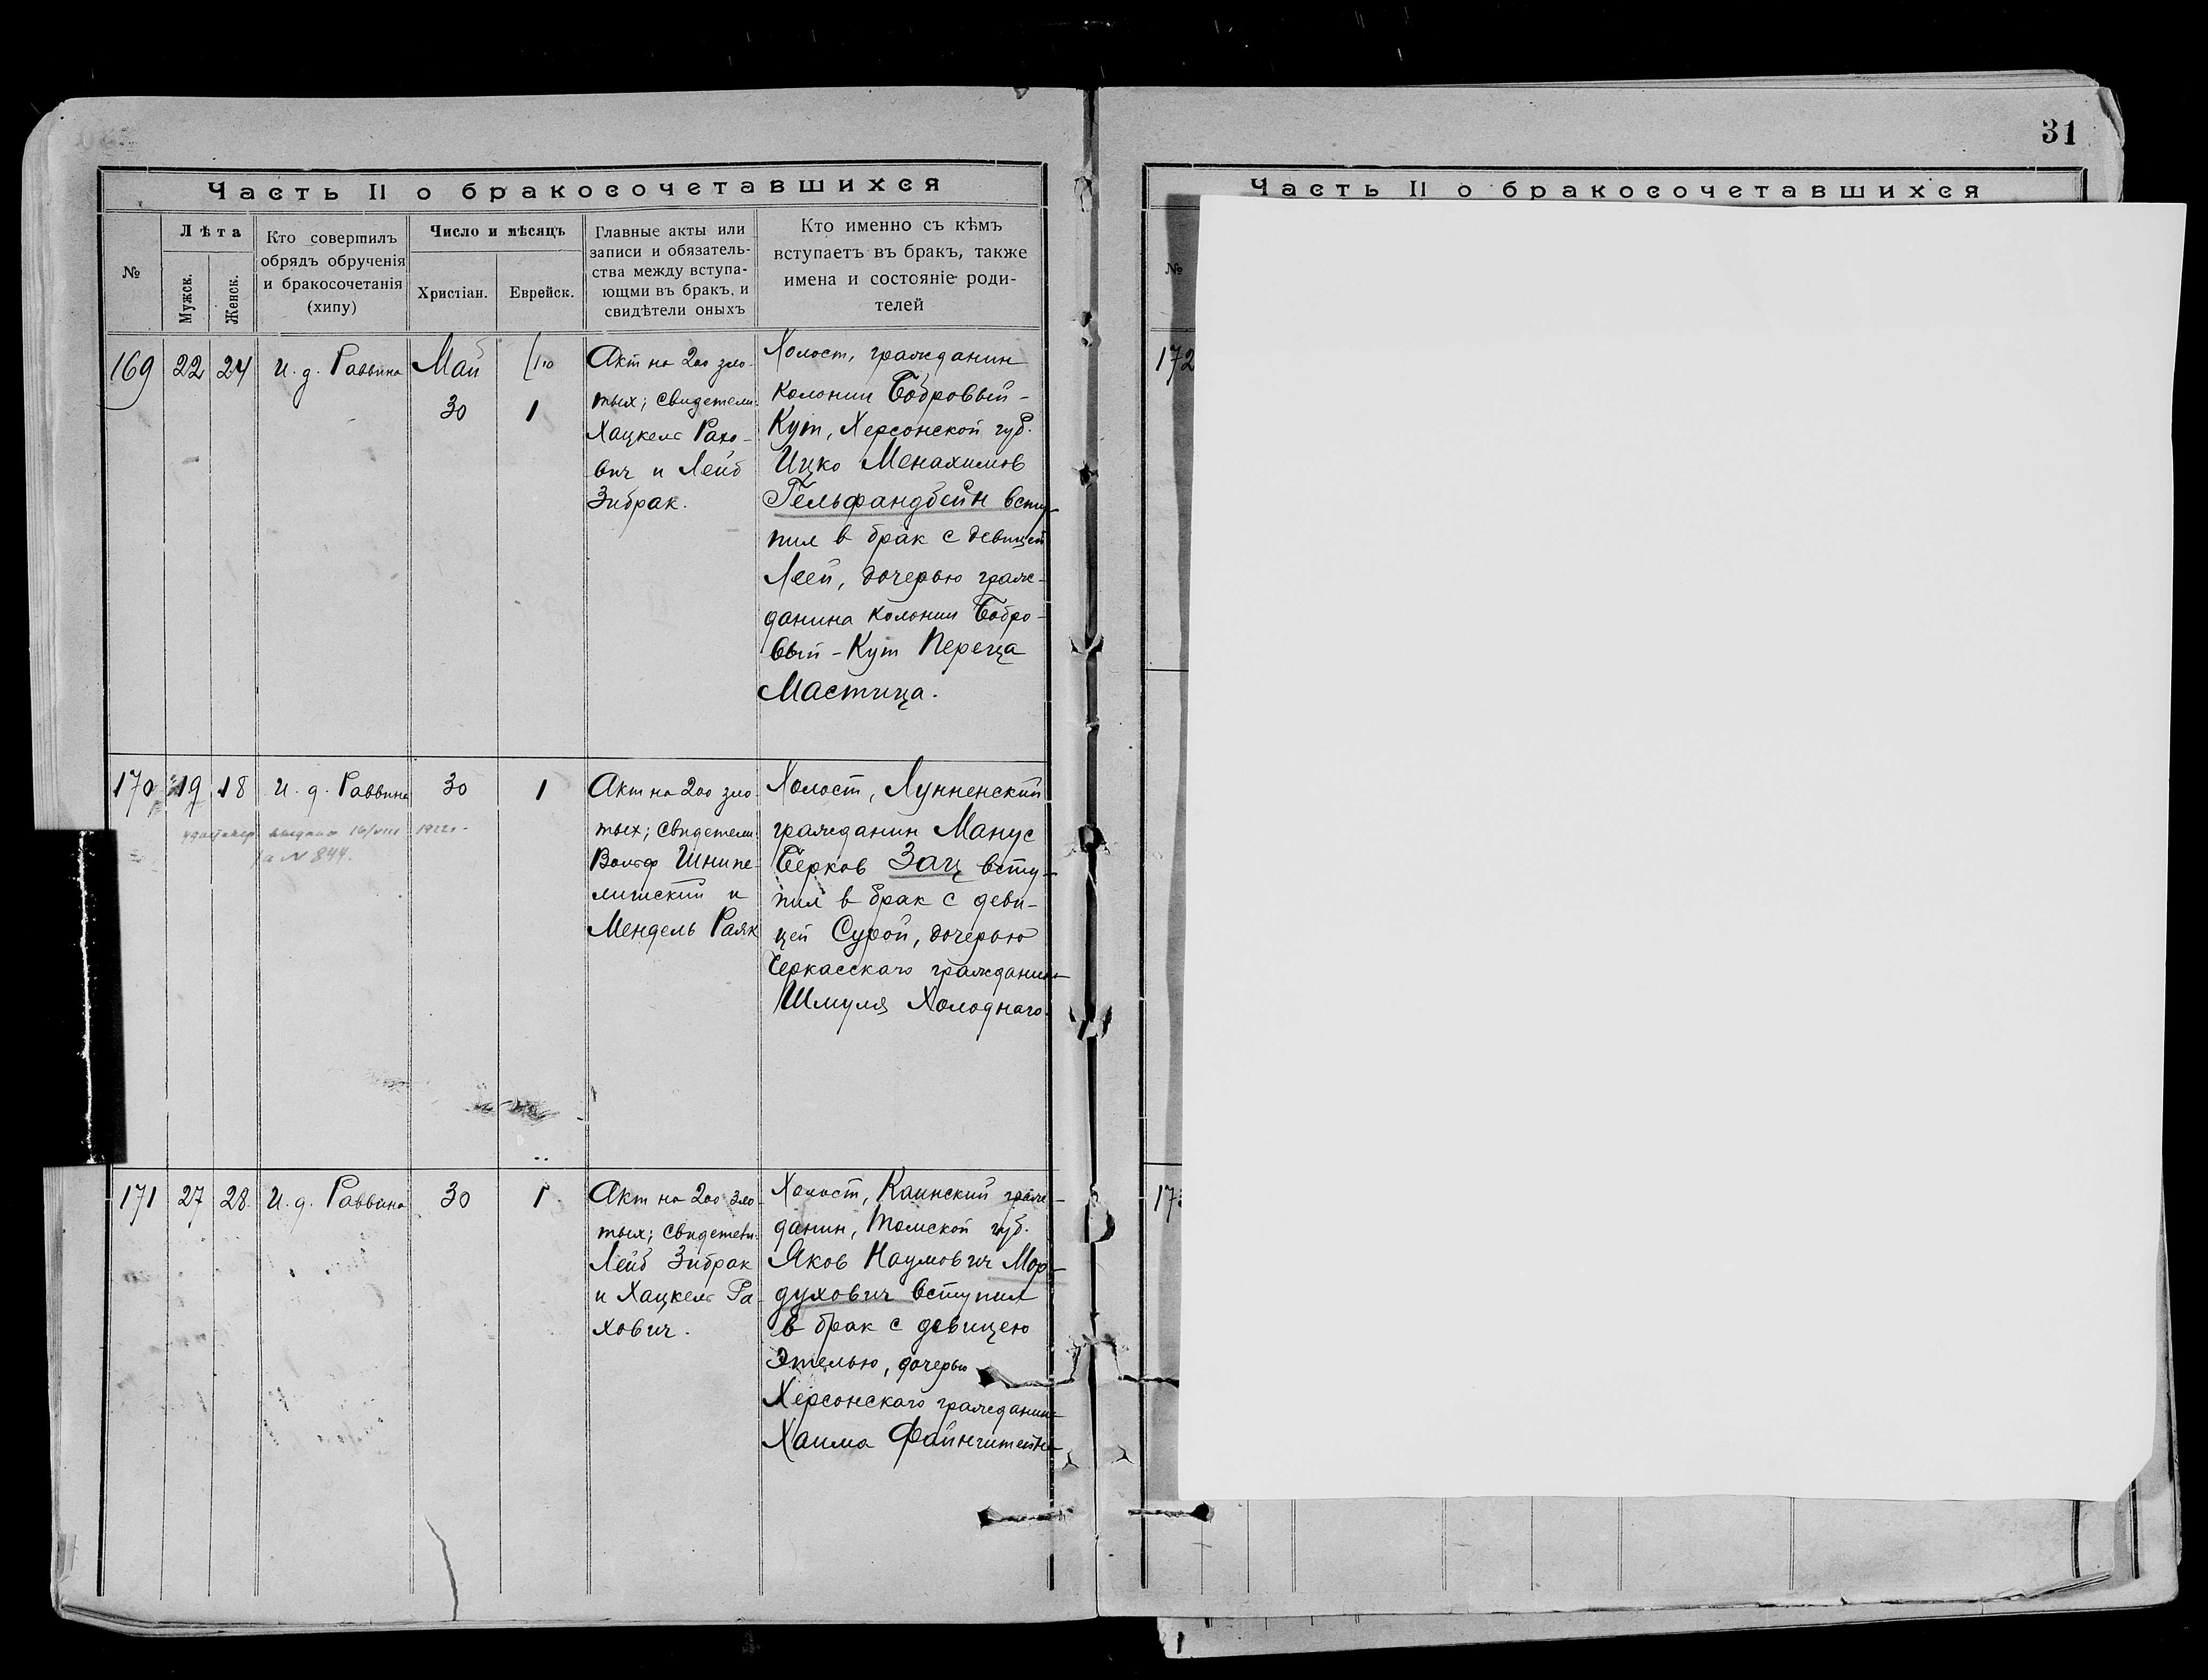 31
Часть II о бракосочетавшихся
№
Лѣта
Мужск.
Женск.
Кто совершилъ
обрядъ обрученія
и бракосочетанія
(хипу)
Число и мѣсяцъ
Христіан.
Еврейск.
Главные акты или
записи и обязатель-
ства между вступа-
ющми въ бракъ, и
свидѣтели оныхъ
Кто именно съ кѣмъ
вступаетъ въ бракъ, также
имена и состояніе роди-
телей
169 22 24 И. д. Раввина Май
30 1
Акт на 200 зло-
тых; свидетели:
Хацкель Рахо-
вич и Лейб
Зибрак.
Холост, гражданин
колонии Бобровый-
Кут, Херсонской губ.
Ицко Менахимов
Гельфандбейн всту-
пил в брак с девицей
Леей, дочерью граж-
данина колонии Бобро-
вый-Кут Переца
Мастица.
170 19 18 И. д. Раввина 30 1
выдано 16/VIII 1922 г.
за № 844.
Акт на 200 зло-
тых; свидетели:
Вольф Шнипе-
лишский и
Мендель Раяк
Холост, Лунненский
гражданин Манус
Берков Зац всту-
пил в брак с деви-
цей Сурой, дочерью
Черкасскаго гражданина
Шмуля Холоднаго.
171 27 28 И. д. Раввина 30 1
Акт на 200 зло-
тых; свидетели:
Лейб Зибрак
и Хацкель Ра-
хович.
Холост, Каинский граж-
данин, Томской губ.
Яков Наумович Мор-
духович вступил
в брак с девицею
Этелью, дочерью
Херсонскаго гражданина
Хаима
Часть II о бракосочетавшихся
№
172